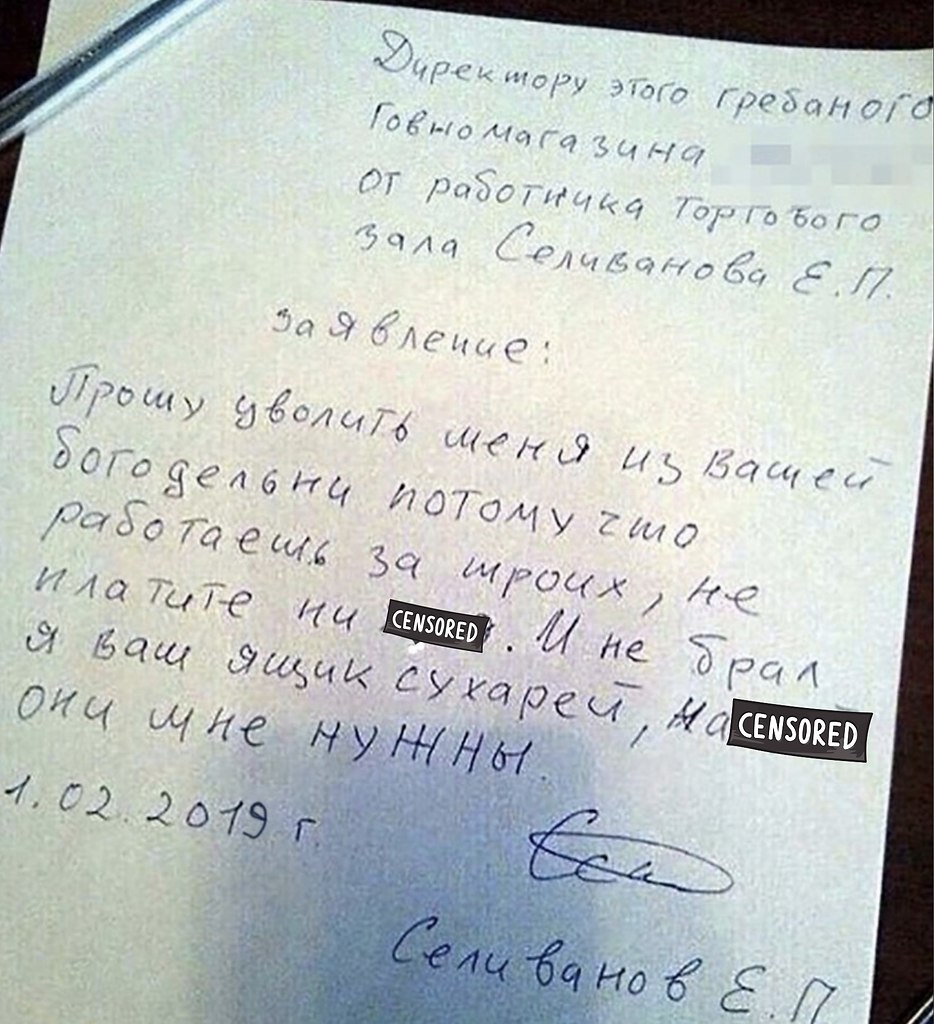 Директору этого гребаного
Говномагазина
от работника Торгового
зала Селиванова Е.П.
заявление:
Прошу уволить меня из вашей
богодельни потому что
работаешь за троих, не
платите ни CENSORED. И не брал
я ваш ящик сухарей, на CENSORED
они мне нужны.
1.02.2019 г.
Селиванов Е.П